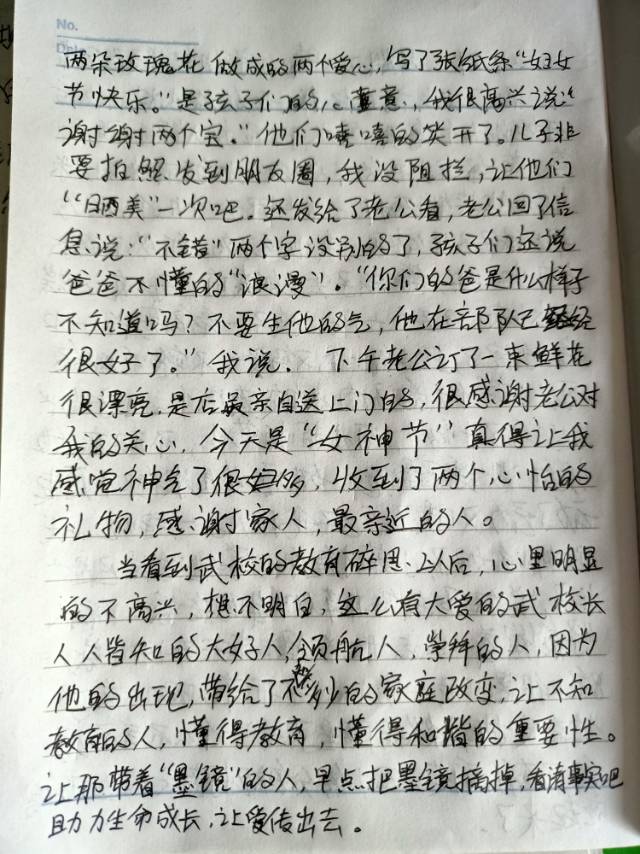 No.
两朵玫瑰花做成的两个爱心，写了张纸条“妇女
节快乐。”是孩子们的心意，我很高兴说“
谢谢两个宝。”他们嘻嘻的笑开了。儿子非
要拍照发到朋友圈，我没阻拦，让他们
“晒美”一次吧。还发给了老公看，老公回了信
息说：“不错”两个字没别的了，孩子们还说
爸爸不懂的“浪漫”。“你们的爸是什么样子
不知道吗？不要生他的气，他在部队已经
很好了。”我说。下午老公订了一束鲜花
很漂亮，是店最亲自送上门的，很感谢老公对
我的关心，今天是“女神节”真得让我
感觉神气了很多，收到了两个心怡的
礼物，感谢家人，最亲近的人。
当看到武校的教育碎思以后，心里明显
的不高兴，想不明白，这么有大爱的武校长
人人皆知的大好人，领航人，崇拜的人，因为
他的出现，带给了很多的家庭改变，让不知
教育的人，懂得教育，懂得和谐的重要性。
让那带着“墨镜”的人，早点把墨镜摘掉，看清事实吧
助力生命成长，让爱传出去。